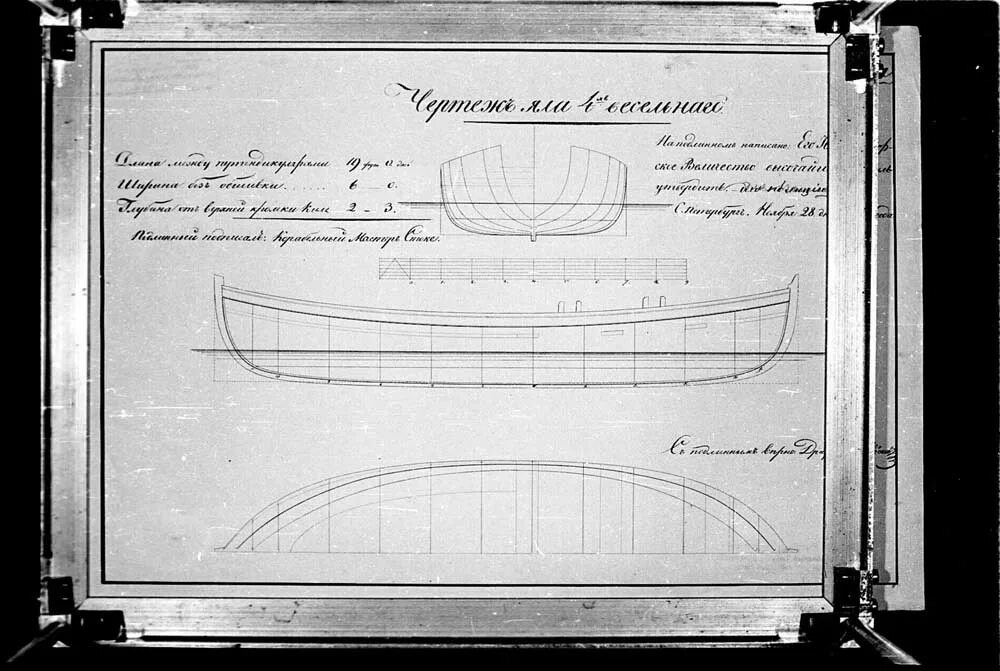 Чертежъ яла 4хъ весельнаго
Длина между перпендикулярами 19 фут. 0 дюй
Ширина безъ обшивки 6 _ 0.
Глубина отъ верхней кромки киля 2 _ 3.
Подлинный подписалъ: Корабельный Мастеръ Стоке.
На подлинномъ написано: Его
ское Величество
утвердить
С. Петербургъ. Ноября 28
Съ подлиннымъ вѣрно